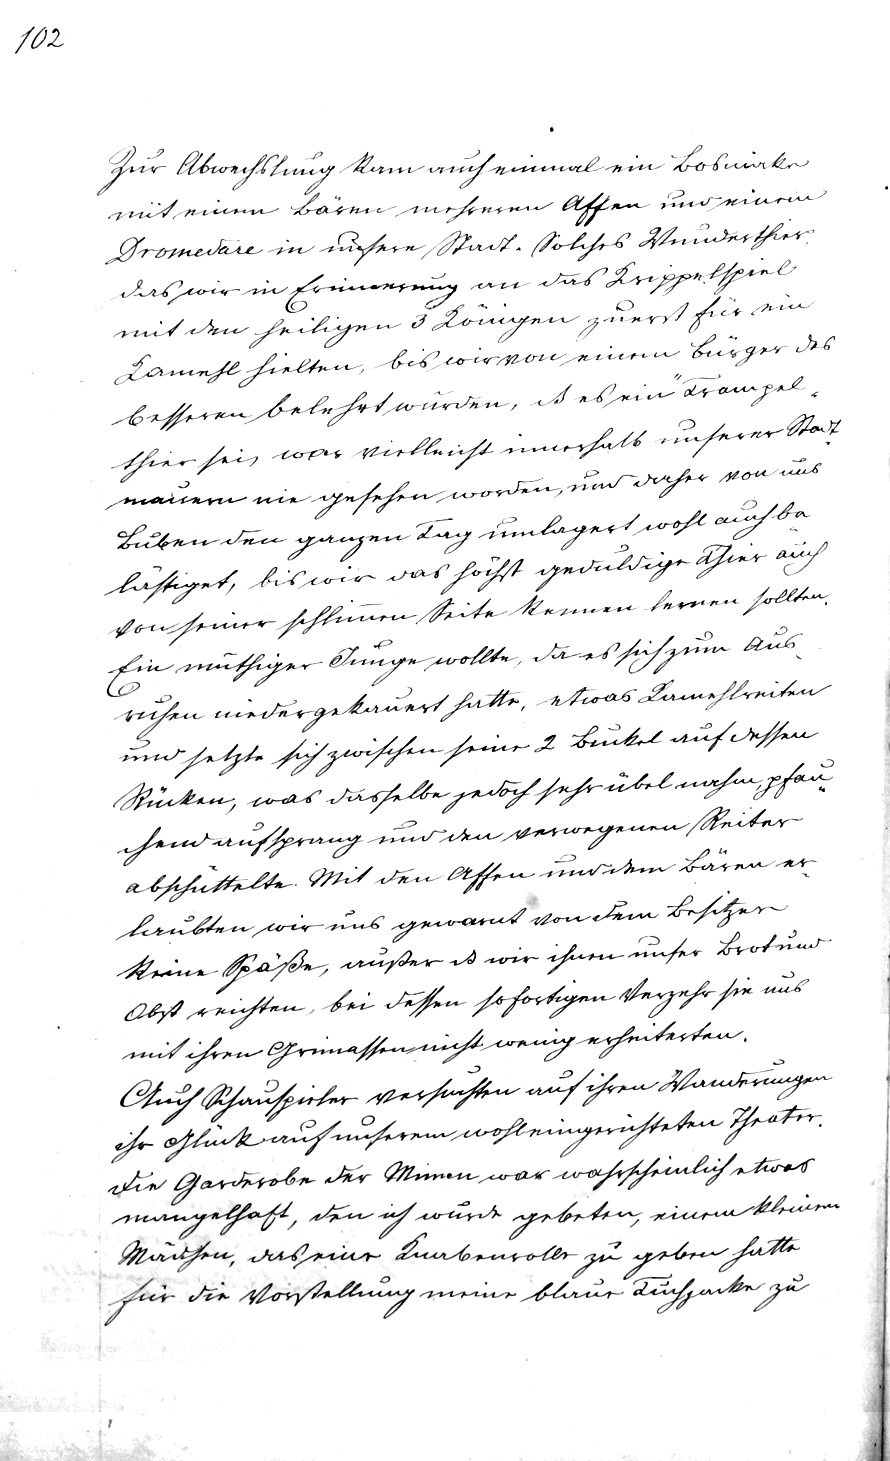 102
Zur Abwechslung kam auch einmal ein Bosniake
mit einem Bären mehreren Affen und einem
Dromedare in unsere Stadt. Solches Wunderthier,
das wir in Erinnerung an das Krippelspiel
mit den heiligen 3 Königen zuerst für ein
Kamehl hielten, bis wir von einem Bürger des
besseren belehrt wurden, dß es ein "Trampel-
thier sei, war vielleicht innerhalb unserer Stadt-
mauern nie gesehen worden, und daher von uns
Buben den ganzen Tag umlagert wohl auch be-
lästiget, bis wir das höchst geduldige Thier auch
von seiner schlim̄en Seite kennen lernen sollten.
Ein muthiger Junge wollte, da es sich zum Aus-
ruhen niedergekauert hatte, etwas Kamehlreiten
und setzte sich zwischen seine 2 Buckel auf dessen
Rücken, was dasselbe jedoch sehr übel nahm, pfau-
chend aufsprang und den verwegenen Reiter
abschüttelte. Mit den Affen und dem Bären er-
laubten wir uns gewarnt von dem Besitzer
keine Späße, außer dß wir ihnen unser Brot und
Obst reichten, bei dessen sofortigen Verzehr sie uns
mit ihren Grimassen nicht wenig erheiterten.
Auch Schauspieler versuchten auf ihren Wanderungen
ihr Glück auf unserem wohleingerichteten Theater.
Die Garderobe der Mimen war wahrscheinlich etwas
mangelhaft, den ich wurde gebeten, einem kleinen
Mädchen, das eine Knabenrolle zu geben hatte
für die Vorstellung meine blaue Tuchjacke zu